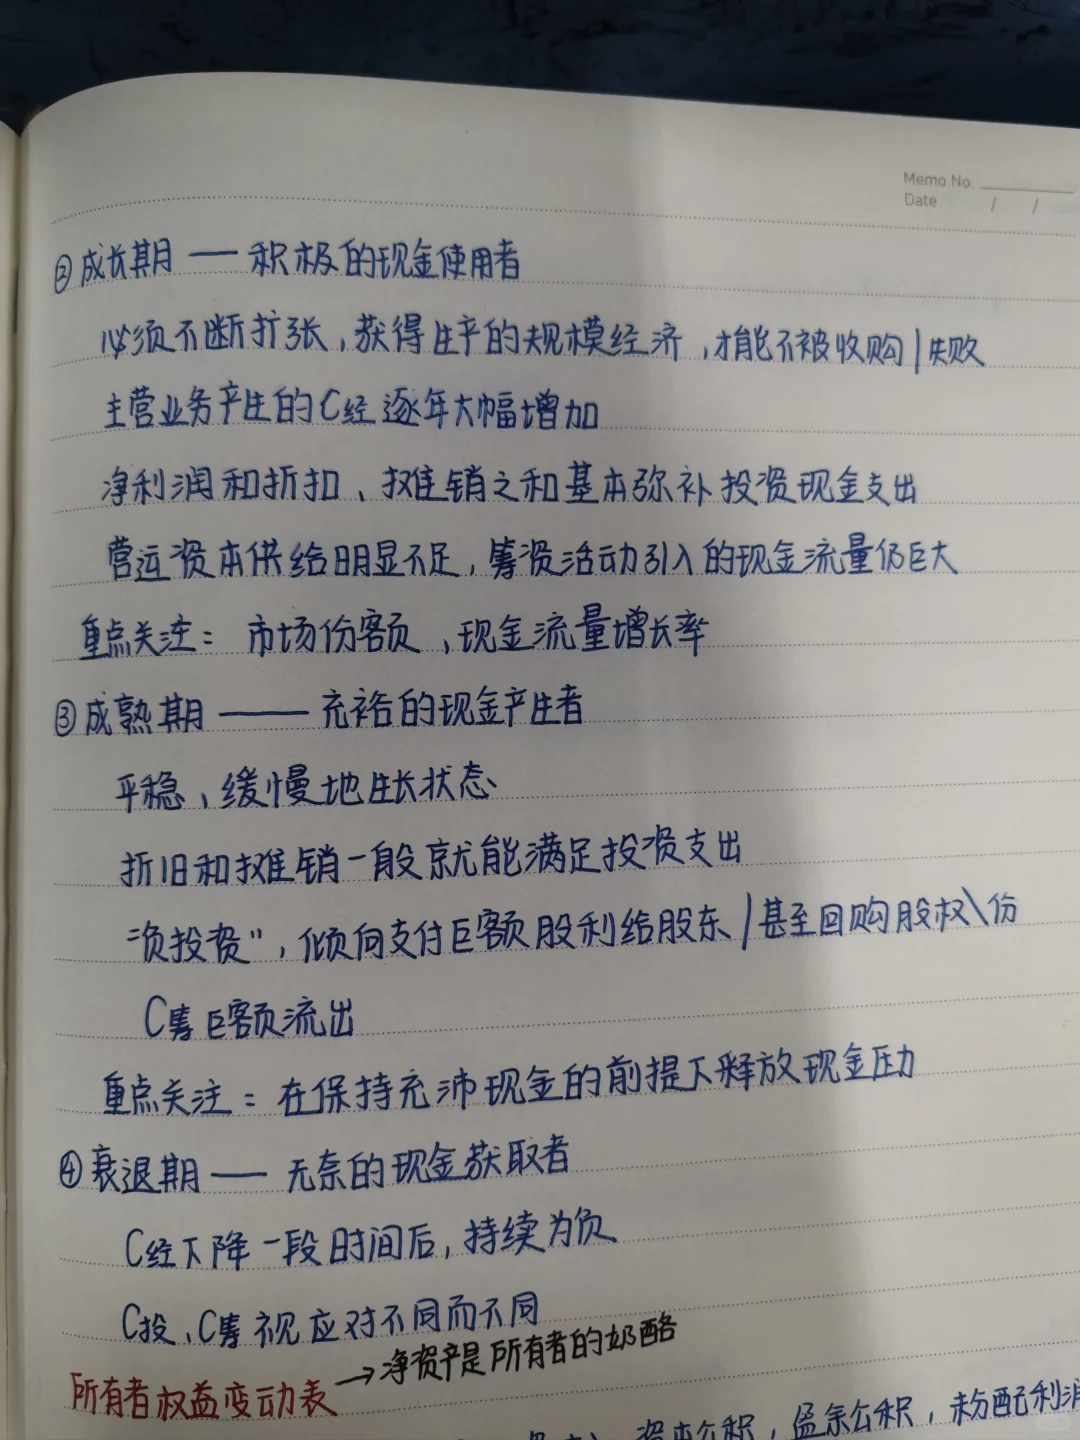 Memo No.
Date / /
②成长期 —— 积极的现金使用者
必须不断扩张,获得生产的规模经济,才能不被收购/失败
主营业务产生的C经逐年大幅增加
净利润和折扣、摊销之和基本弥补投资现金支出
营运资本供给明显不足,筹资活动引入的现金流量仍巨大
重点关注:市场份额,现金流量增长率
③成熟期 —— 充裕的现金产生者
平稳、缓慢地生长状态
折旧和摊销一般就能满足投资支出
"负投资",倾向支付巨额股利给股东/甚至回购股权\份
C筹巨额流出
重点关注:在保持充沛现金的前提下释放现金压力
④衰退期 —— 无奈的现金获取者
C经下降一段时间后,持续为负
C投、C筹视应对不同而不同
所有者权益变动表 →净资产是所有者的奶酪
资本公积,盈余公积,未分配利润